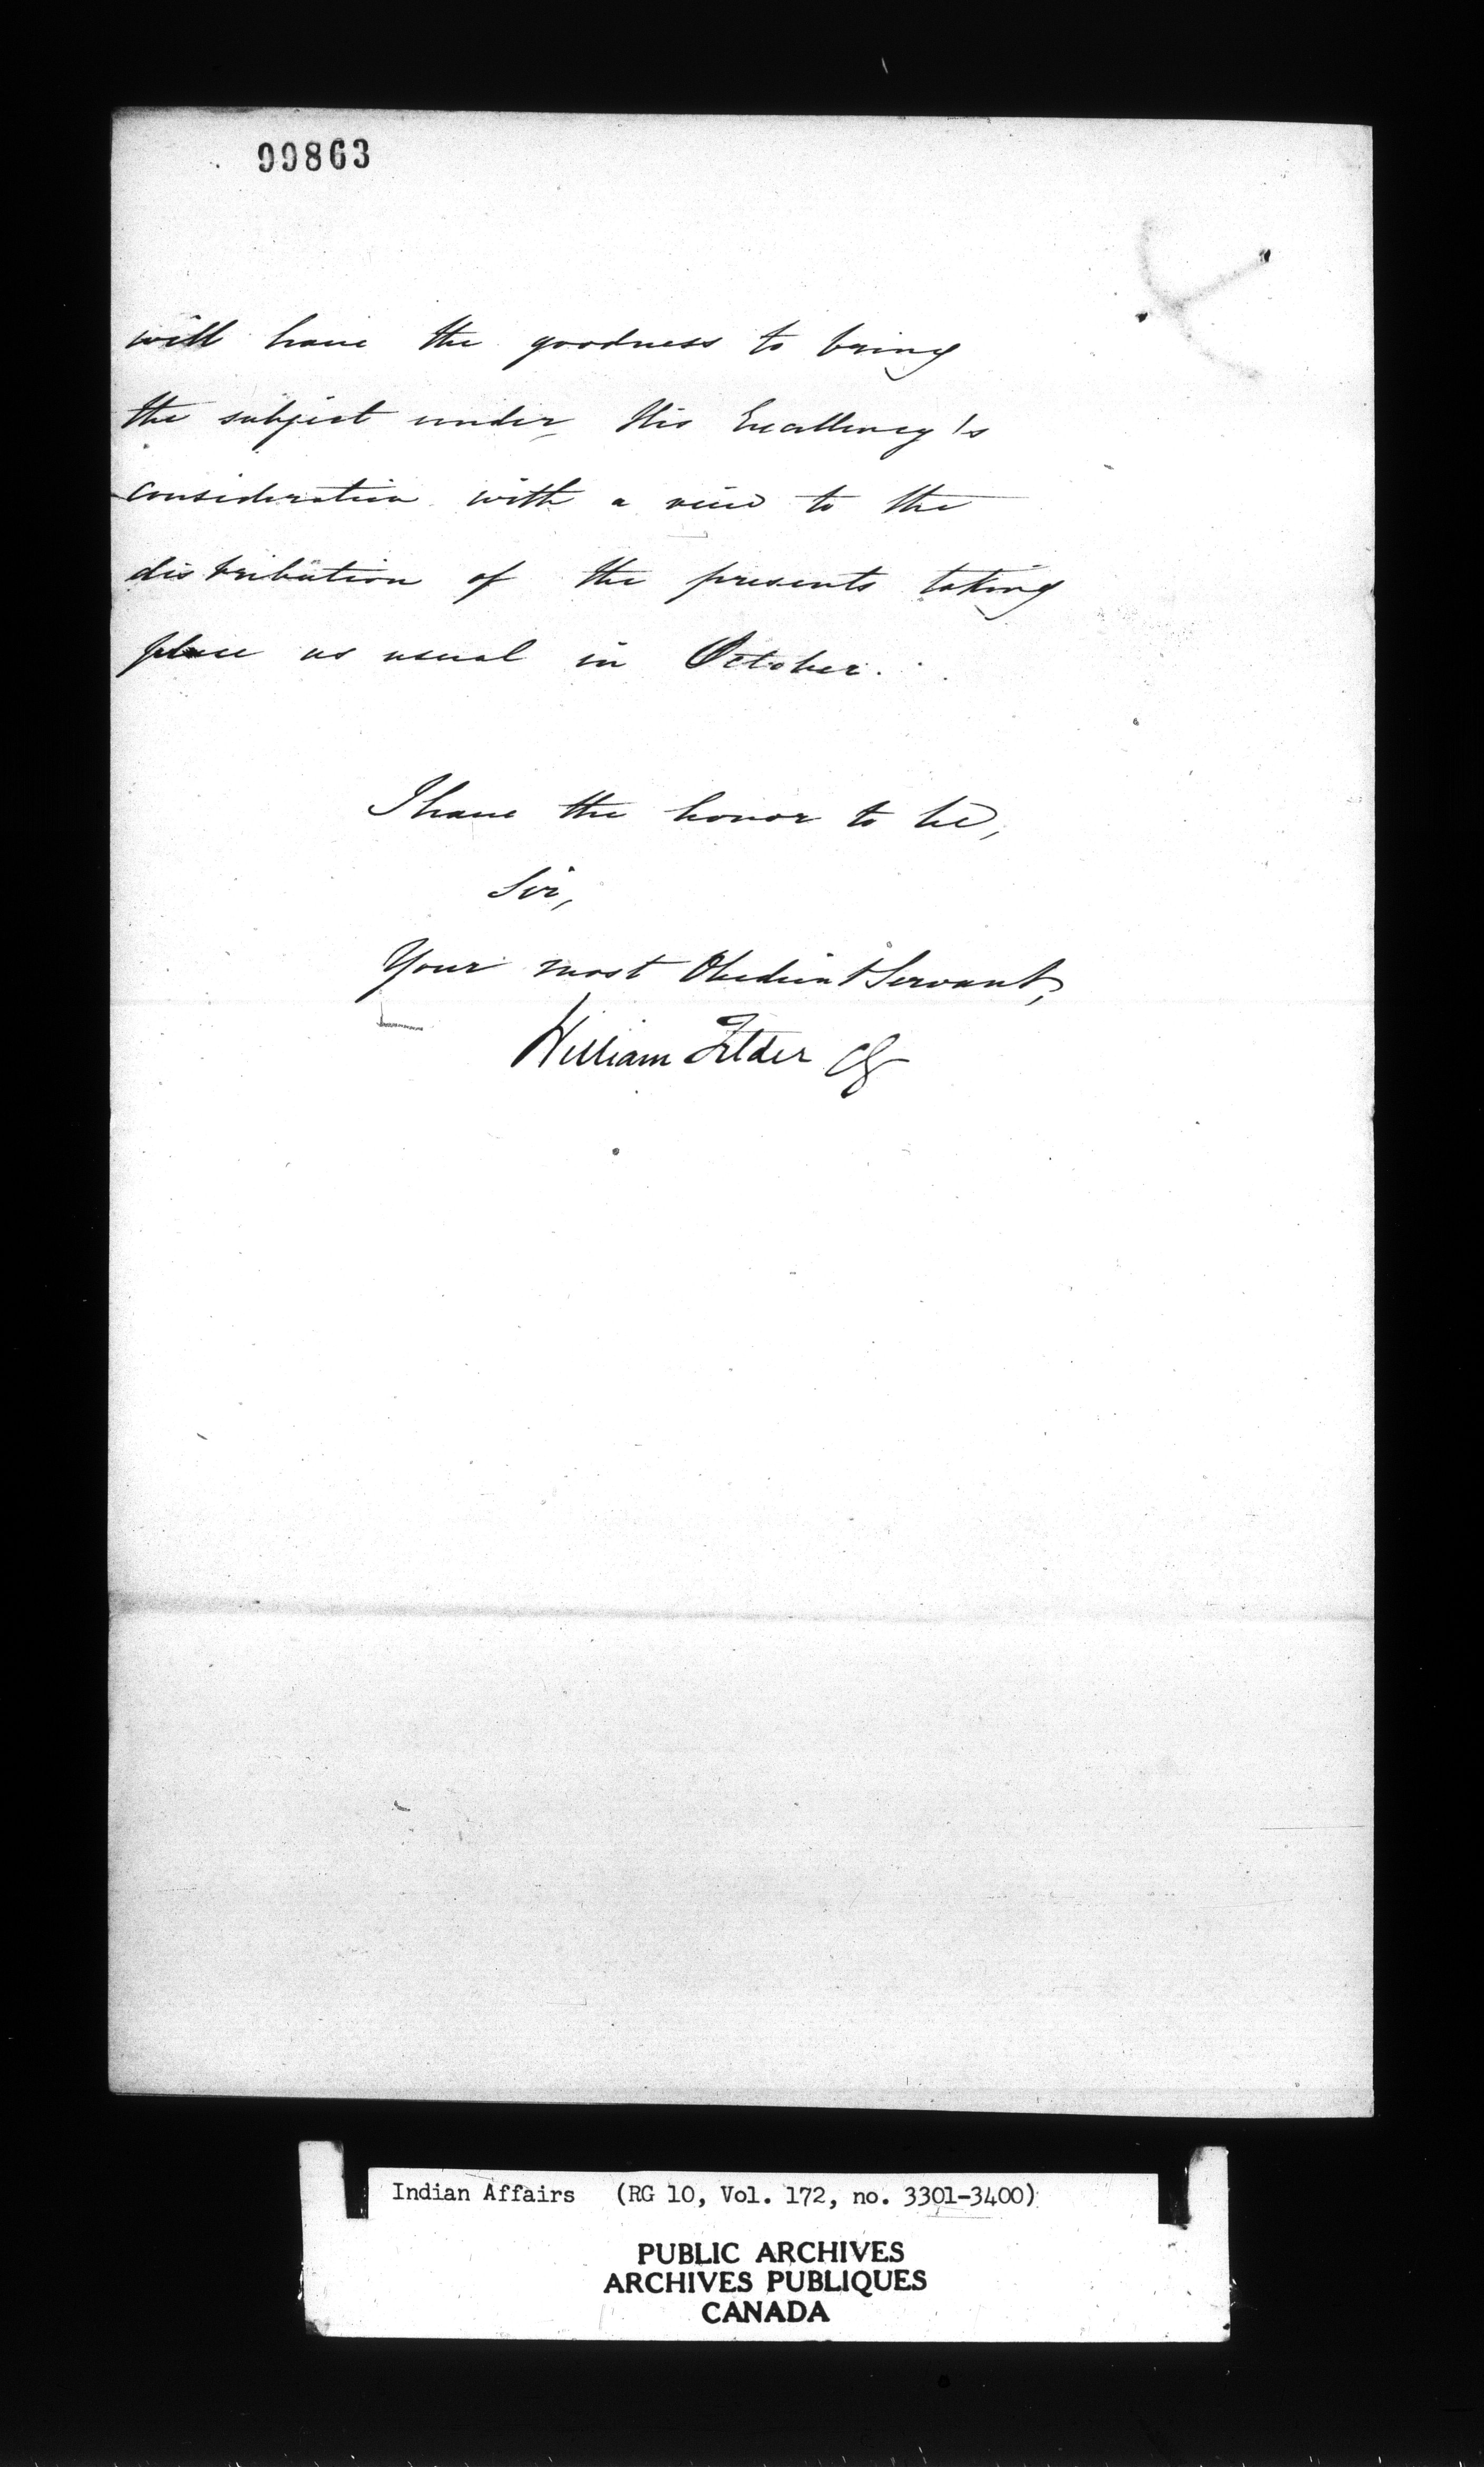 99863
will have the goodness to bring
the subject under His Excellency's
consideration with a view to the
distribution of the presents taking
place as usual in October.
I have the honor to be,
Sir,
Your most Obedient Servant,
William Filder CG
Indian Affairs (RG 10, Vol. 172, no. 3301-3400)
PUBLIC ARCHIVES
ARCHIVES PUBLIQUES
CANADA